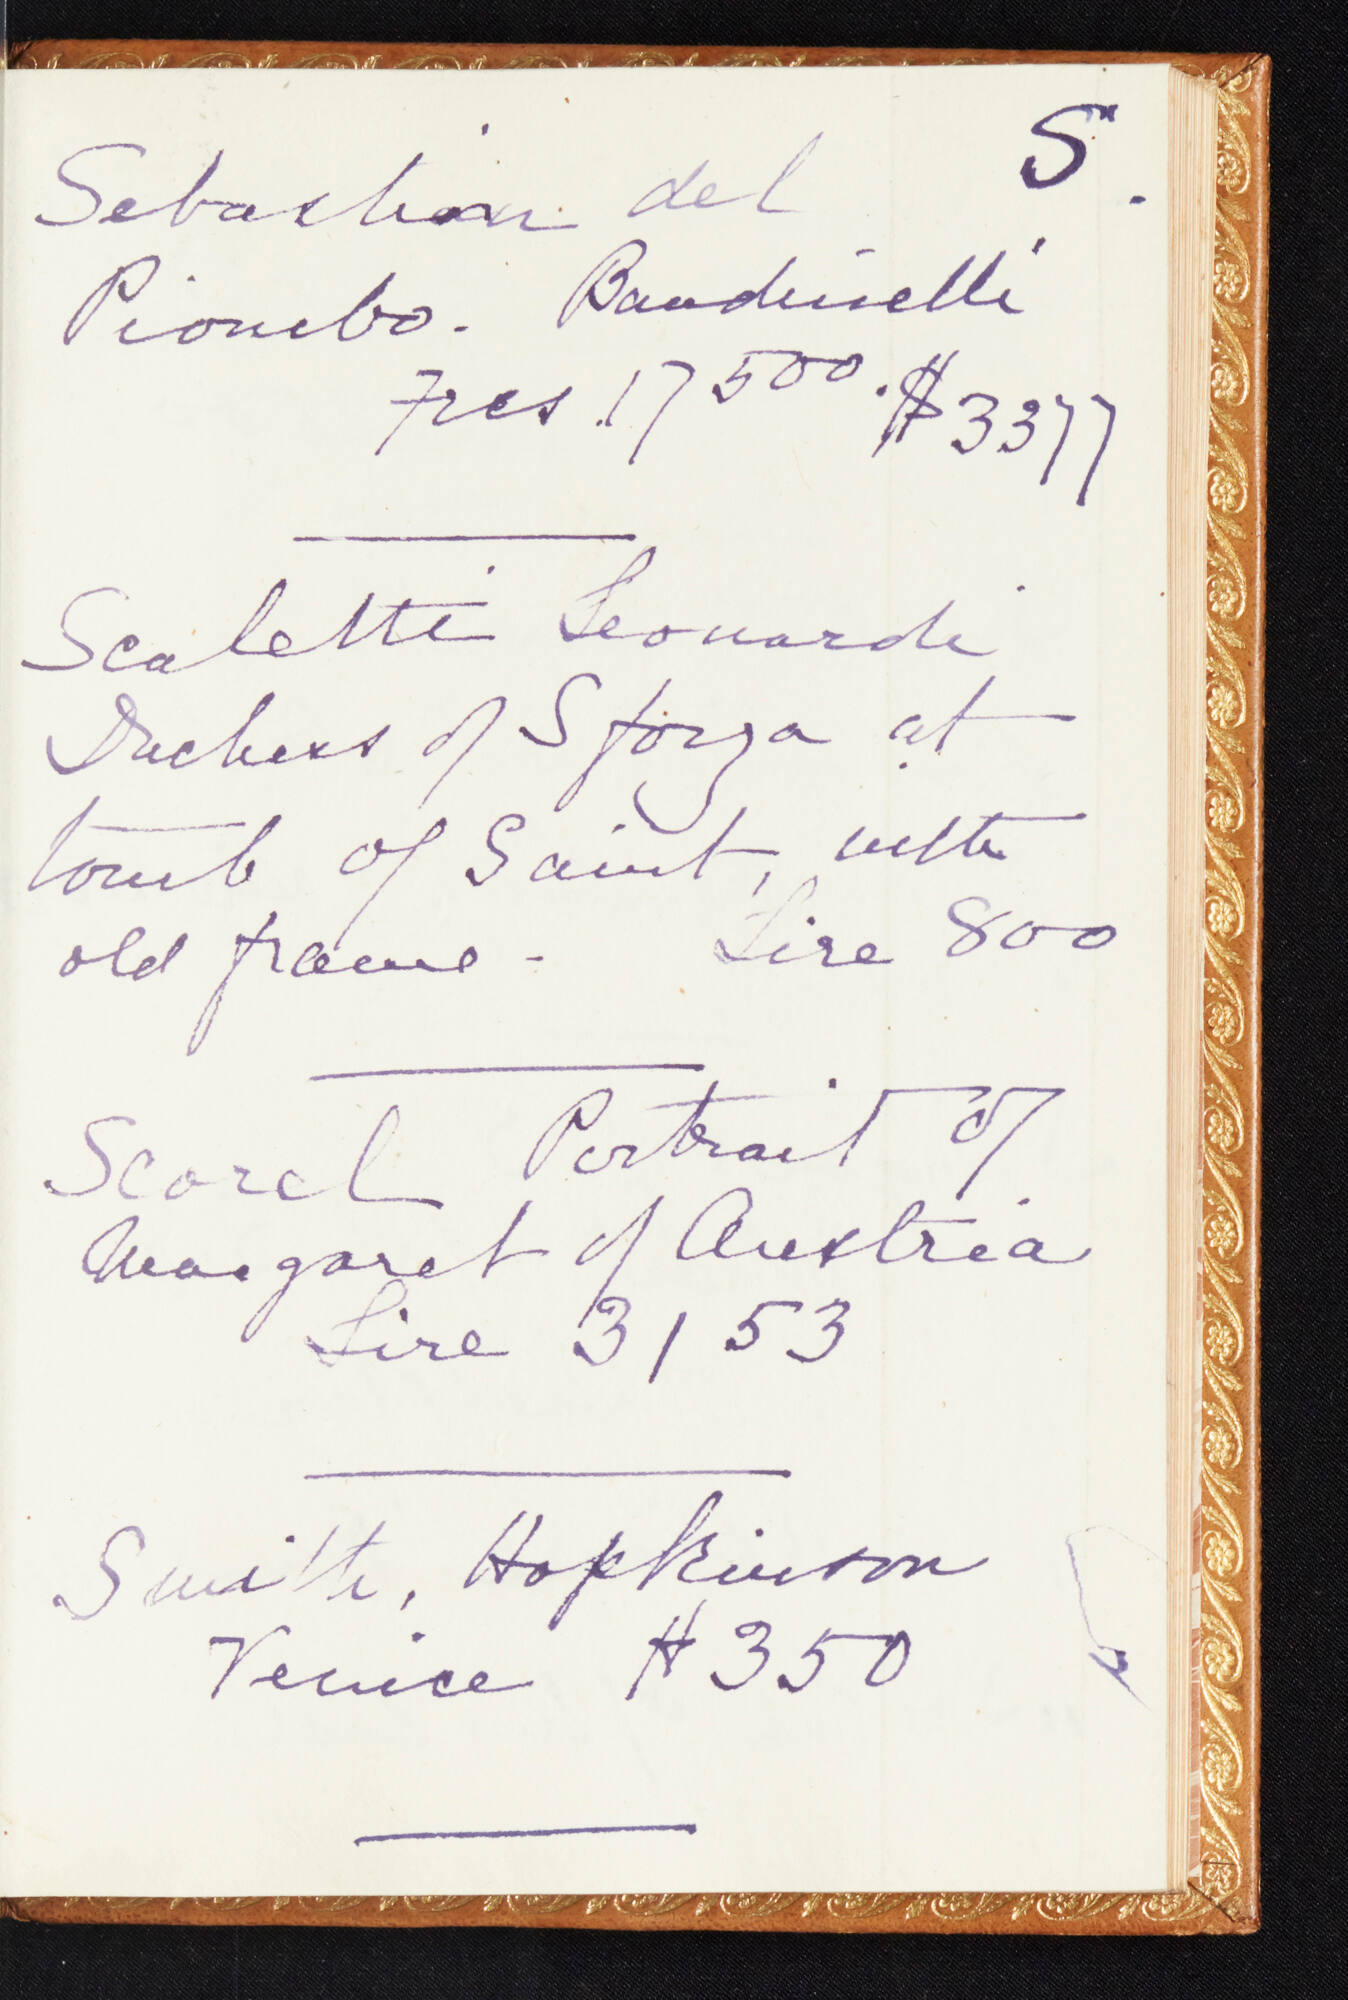 S.
Sebastian del
Piombo. Bandinelli
Frcs. 17500. $3377
Scaletti Leonardi
Duchess of Sforza at
tomb of Saint, with
old frame - Lire 800
Scorel Portrait of
Margaret of Austria
Lire 3153
Smith, Hopkinson
Venice $350